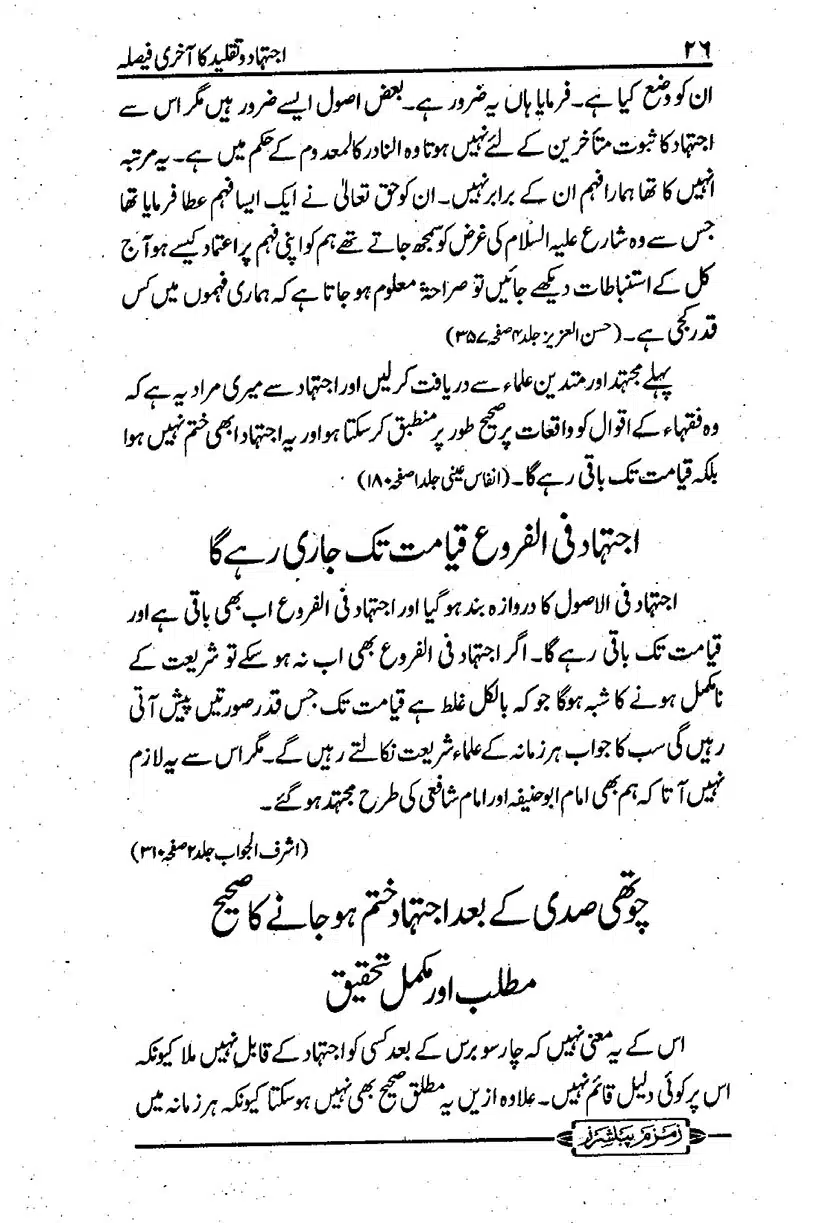 ۲۶
اجتہاد و تقلید کا آخری فیصلہ
ان کو وضع کیا ہے۔ فرمایا ہاں یہ ضرور ہے۔ بعض اصول ایسے ضرور ہیں مگر اس سے
اجتہاد کا ثبوت متأخرین کے لئے نہیں ہوتا وہ النادر کالمعدوم کے حکم میں ہے۔ یہ مرتبہ
انہیں کا تھا ہمارا فہم ان کے برابر نہیں۔ ان کو حق تعالیٰ نے ایک ایسا فہم عطا فرمایا تھا
جس سے وہ شارع علیہ السلام کی غرض کو سمجھ جاتے تھے ہم کو اپنی فہم پر اعتماد کیسے ہو آج
کل کے استنباطات دیکھے جائیں تو صراحۃ معلوم ہو جاتا ہے کہ ہماری فہموں میں کس
قدر کجی ہے۔ (حسن العزیز جلد ۴ صفحہ ۳۵۷)
پہلے مجتہد اور متدین علماء سے دریافت کر لیں اور اجتہاد سے میری مراد یہ ہے کہ
وہ فقہاء کے اقوال کو واقعات پر صحیح طور پر منطبق کر سکتا ہو اور یہ اجتہاد ابھی ختم نہیں ہوا
بلکہ قیامت تک باقی رہے گا۔ (انفاس عیسٰی جلد ۱ صفحہ ۱۸۰)
اجتہاد فی الفروع قیامت تک جاری رہے گا
اجتہاد فی الاصول کا دروازہ بند ہو گیا اور اجتہاد فی الفروع اب بھی باقی ہے اور
قیامت تک باقی رہے گا۔ اگر اجتہاد فی الفروع بھی اب نہ ہو سکے تو شریعت کے
نامکمل ہونے کا شبہ ہوگا جو کہ بالکل غلط ہے قیامت تک جس قدر صورتیں پیش آتی
رہیں گی سب کا جواب ہر زمانہ کے علماء شریعت نکالتے رہیں گے۔ مگر اس سے یہ لازم
نہیں آتا کہ ہم بھی امام ابو حنیفہ اور امام شافعی کی طرح مجتہد ہو گئے۔
(اشرف الجواب جلد ۲ صفحہ ۳۱۰)
چوتھی صدی کے بعد اجتہاد ختم ہو جانے کا صحیح
مطلب اور مکمل تحقیق
اس کے یہ معنی نہیں کہ چار سو برس کے بعد کسی کو اجتہاد کے قابل نہیں ملا کیونکہ
اس پر کوئی دلیل قائم نہیں۔ علاوہ ازیں یہ مطلق صحیح بھی نہیں ہو سکتا کیونکہ ہر زمانہ میں
زمزم پبلشرز